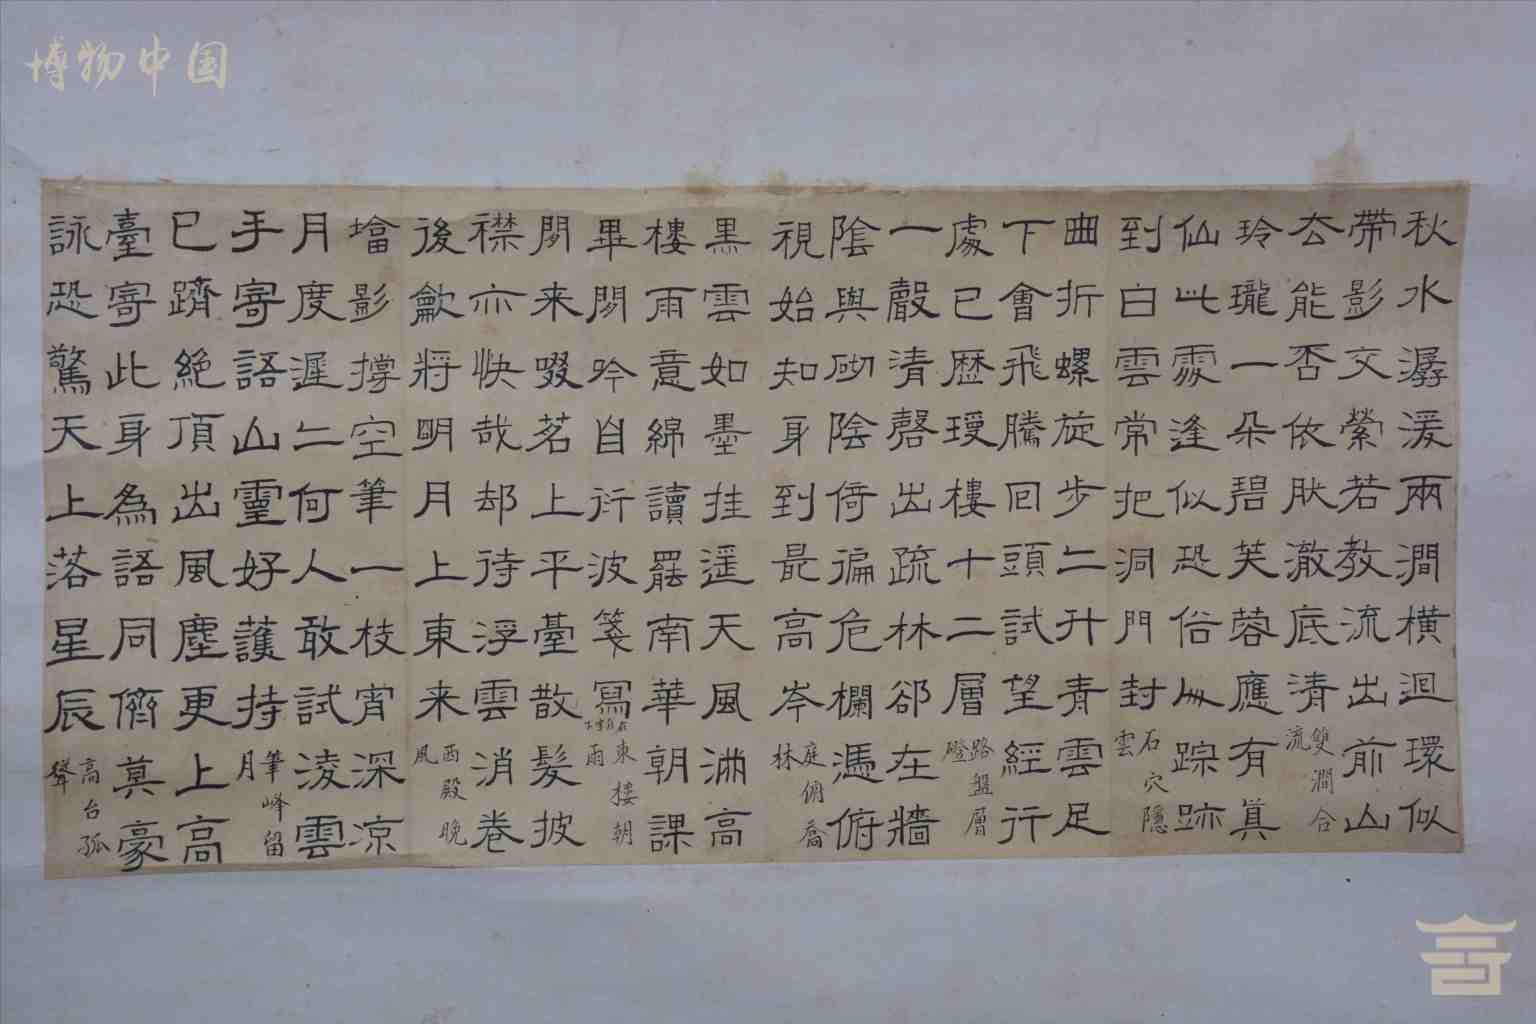 博物中国
秋水潺湲兩澗橫迴環似
帶影交縈若教流出前山
去能否依肰澈底清 雙澗合流
玲瓏一朵碧芙蓉應有真
仙此處逢似恐俗人踪跡
到白雲常把洞門封 石穴隱雲
曲折螺旋步二升青雲足
下會飛騰回頭試望經行
處已歷樓十二層 路盤層磴
一聲清磬出疏林郤在牆
陰與砌陰倚徧危欄憑俯
視始知身到最高岑 庭俯喬林
黑雲如墨挂遥天風滿高
樓雨意綿讀罷南華朝課
畢閒吟自衍波箋寫 東樓朝雨
閒来啜茗上平臺散髮披
襟亦快哉却待浮雲消卷
後歘將明月上東来 西殿晚風
影撐空筆一枝宵深凉
月度遲二何人敢試淩雲
手寄語山靈好護持 筆峰留月
已躋絶頂出風塵更上高
臺寄此身為語同儕莫豪
詠恐驚天上落星辰 高台孤聲